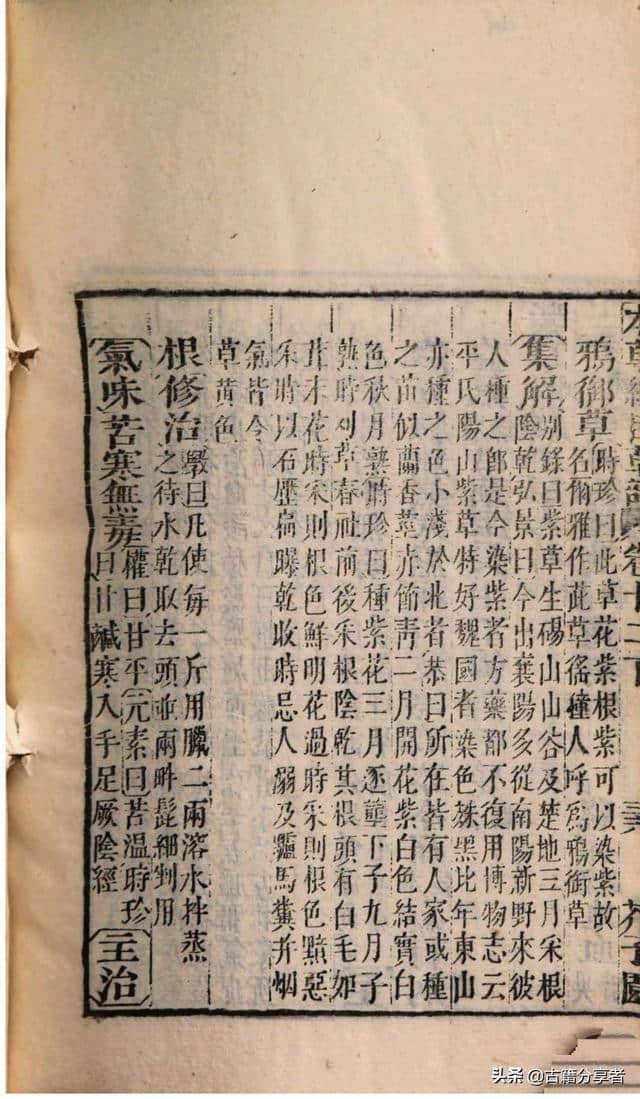 草部 卷十二下 芥子園
鴉御草 時珍曰此草花紫根紫可以染紫故
名爾雅作茈草猺獞人呼爲鴉銜草
集解 別錄曰紫草生碭山山谷及楚地三月采根
陰乾弘景曰今出襄陽多從南陽新野來彼
人種之卽是今染紫者方藥都不復用博物志云
平氏陽山紫草特好魏國者染色殊黑比年東山
亦種之色小淺於北者恭曰所在皆有人家或種
之苗似蘭香莖赤節靑二月開花紫白色結實白
色秋月熟時珍曰種紫花三月逐壟下子九月子
熟時刈草春社前後采根陰乾其根頭有白毛如
茸未花時采則根色鮮明花過時采則根色黯惡
采時以石壓扁曝乾收時忌人溺及驢馬糞幷烟
氣皆令
草黃色
根修治 斅曰凡使每一斤用臘二兩溶水拌蒸
之待水乾取去頭並兩畔髭細剉用
氣味苦寒無毒 權曰甘平元素曰苦溫時珍
曰甘鹹寒入手足厥陰經 主治
头条 @古籍分享者